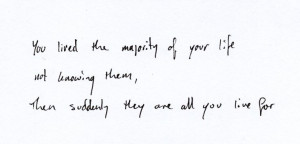 You lived the majority of your life
not knowing them,
Then suddenly they are all you live for